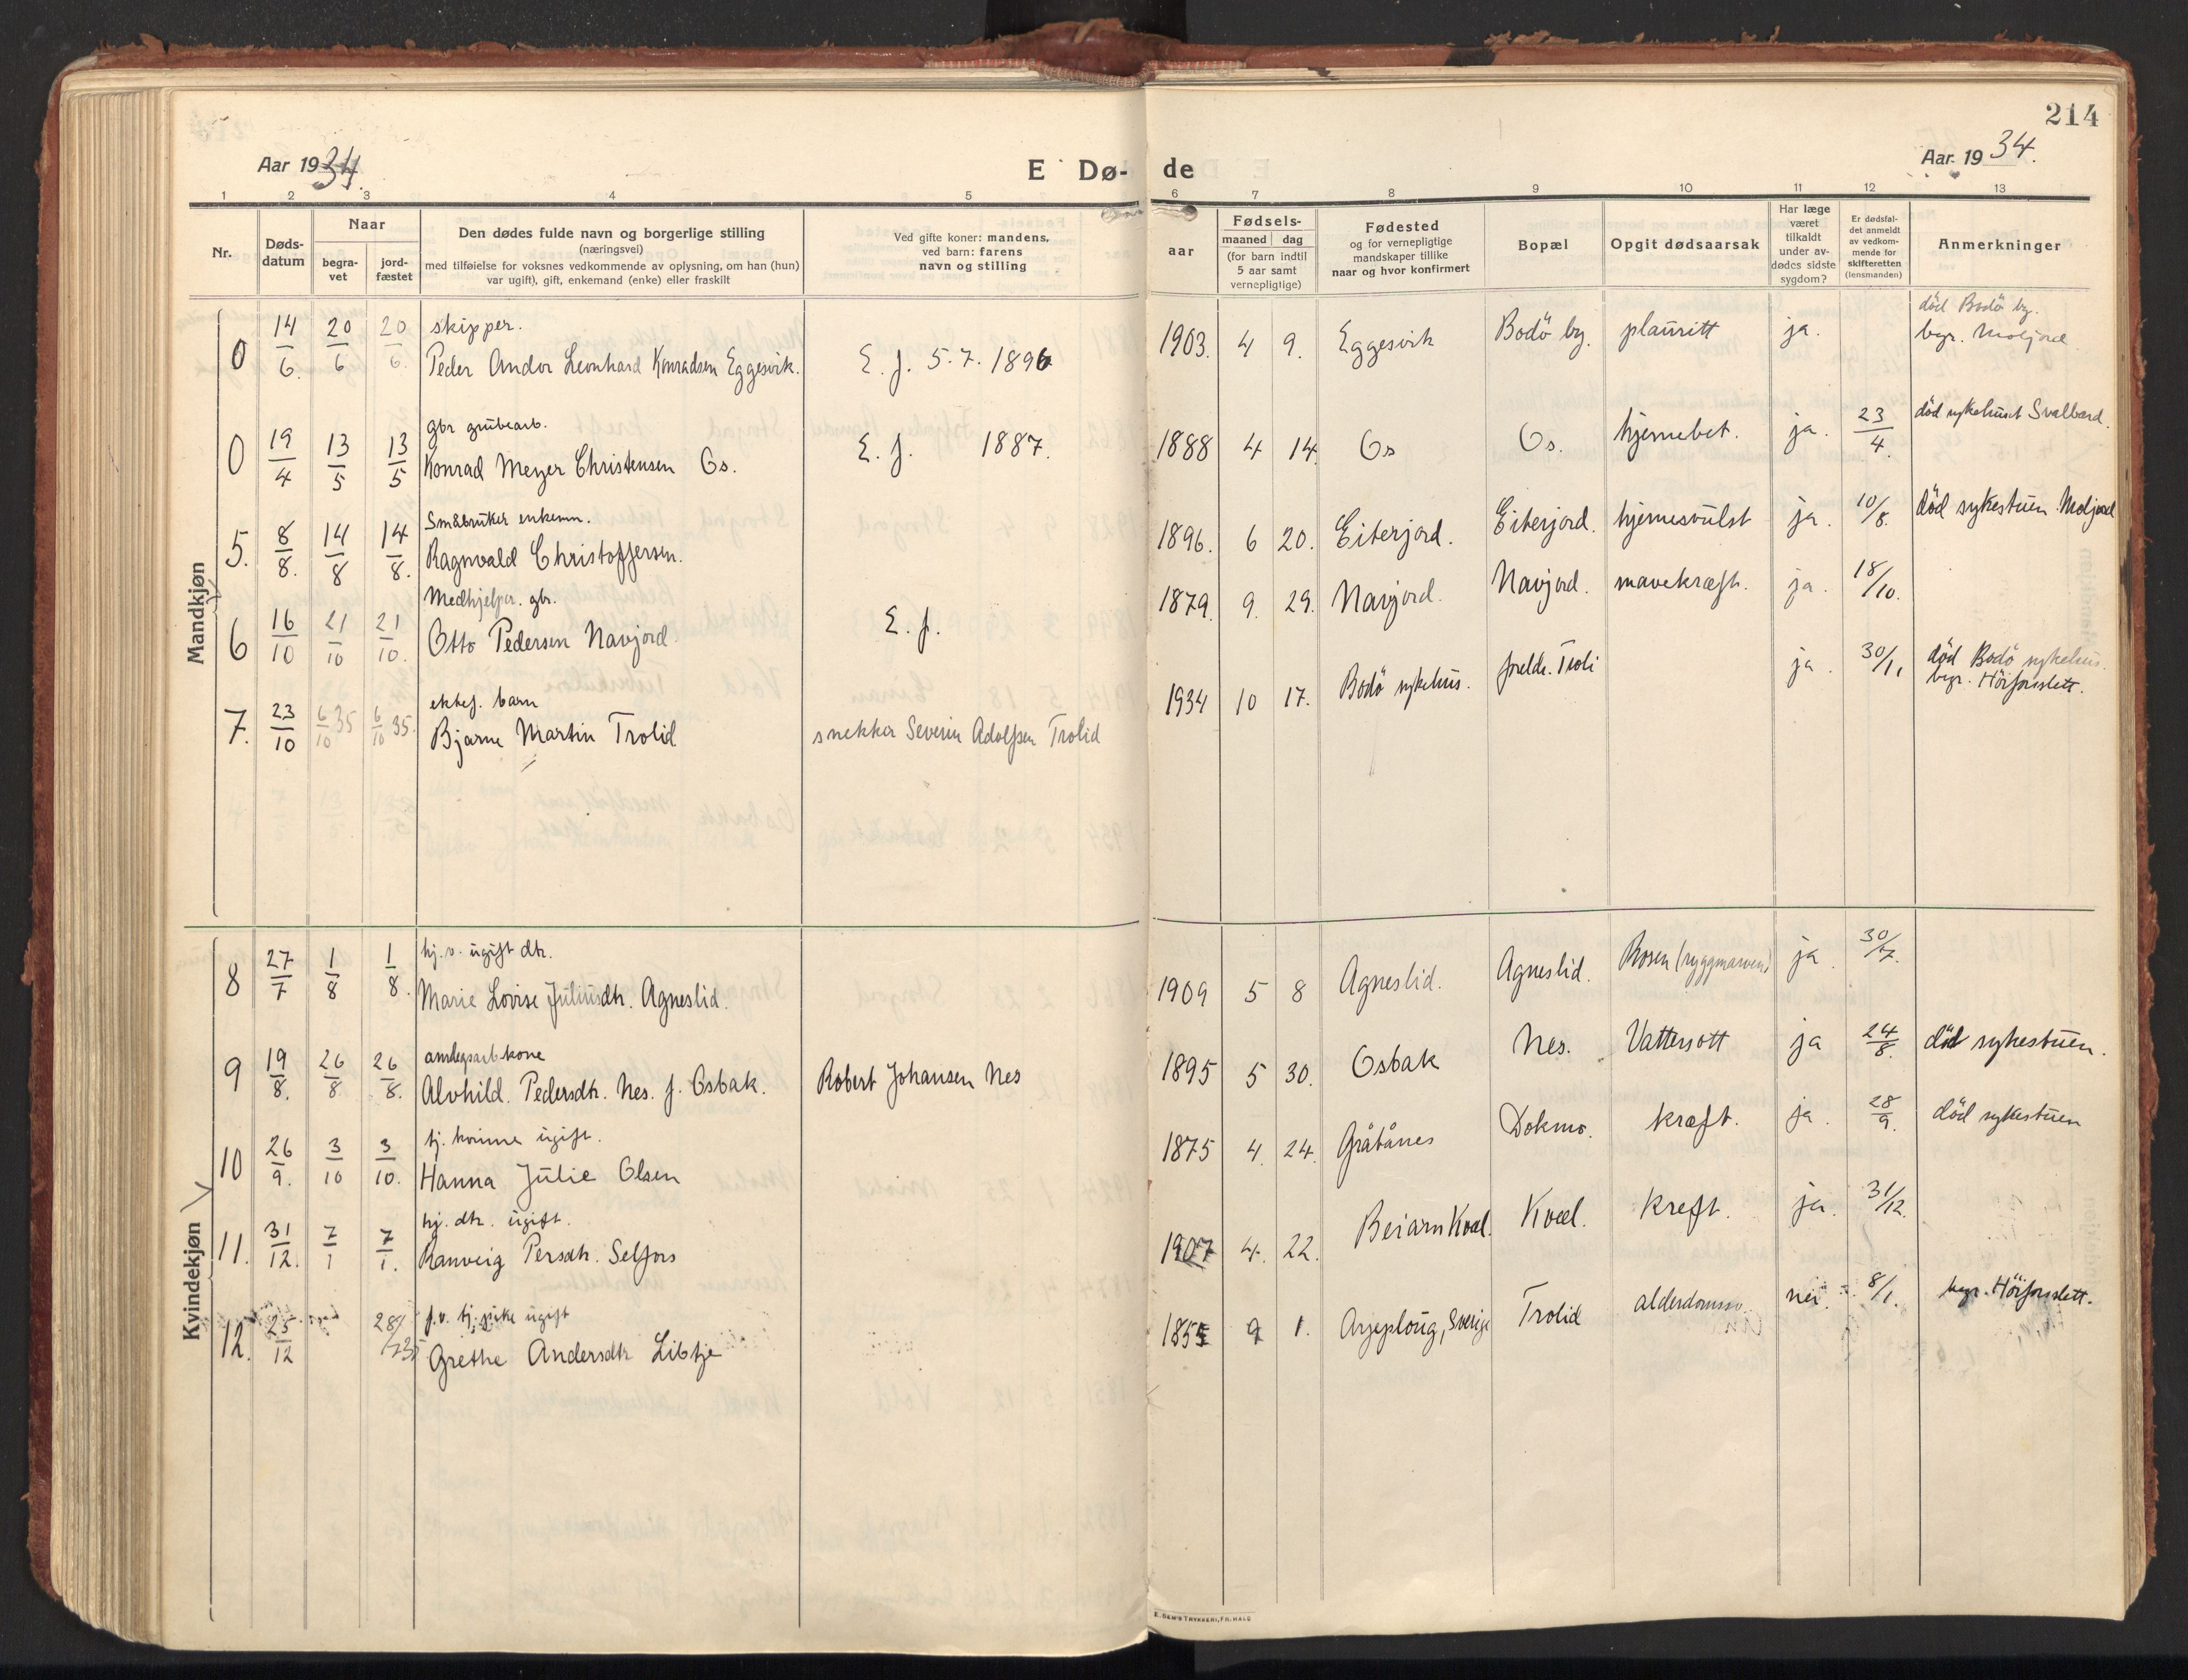 214
Aar 1934.
E Dø-
de
Aar 1934.
1 2 3 4 5 6 7 8 9 10 11 12 13
Nr.
Døds-
datum
Naar
begra-
vet
jord-
fæstet
Den dødes fulde navn og borgerlige stilling
(næringsvei)
med tilføielse for voksnes vedkommende av oplysning, om han (hun)
var ugift), gift, enkemand (enke) eller fraskilt
Ved gifte koner: mandens,
ved barn: farens
navn og stilling
aar
Fødsels-
maaned dag
(for barn indtil
5 aar samt
vernepligtige)
Fødested
og for vernepligtige
mandskaper tillike
naar og hvor konfirmert
Bopæl
Opgit dødsaarsak
Har læge
været
tilkaldt
under av-
dødes sidste
sygdom?
Er dødsfal-
det anmeldt
av vedkom-
mende for
skifteretten
(lensmanden)
Anmerkninger
Mandkjøn
skipper.
død Bodö by.
0 14/6. 20/6 20/6. Peder Andor Leonhard Konradsen Eggesvik. E. f. 5.7. 1896 1903. 4 9. Eggesvik Bodö by. plauritt ja. begr. Moljord
gbr grubearb.
0 19/4 13/5 13/5 Konrad Meyer Christensen Os. E. f. 1887. 1888 4 14. Os Os. hjernebet. ja. 23/4. död sykehuset Svalbard.
Småbruker enkem.
5. 8/8. 14/8 14/8. Ragnvald Christoffersen. 1896. 6 20. Eiterjord. Eiterjord. hjernesvulst ja. 10/8. död sykestuen Moljord
Medhjelper. gbr.
6 16/10 21/10 21/10. Otto Pedersen Navjord. E. f. 1879. 9. 29. Navjord. Navjord. mavekræft. ja. 18/10.
ektef. barn
7. 23/10 6/10 35 6/10 35. Bjarne Martin Trolid snekker Severin Adolfsen Trolid 1934 10 17. Bodö sykehus. foreldr. Troli ja. 30/11 död Bodö sykehus.
begr. Höiforsslett.
Kvindekjøn
hj.v. ugift dtr.
8 27/7 1/8 1/8. Marie Lovise Juliusdtr. Agneslid. 1909 5 8 Agneslid. Agneslid. Rosen (ryggmarven) ja. 30/7.
anlegsarb kone
9 19/8. 26/8 26/8. Alvhild. Pedersdtr. Nes. f. Osbak. Robert Johansen Nes 1895 5 30. Osbak Nes. Vattersott ja 24/8. död sykestuen.
tj. kvinne ugift.
10 26/9. 3/10 3/10. Hanna Julie Olsen 1875 4. 24. Gråtånes Dokmo. kræft. ja. 28/9. död sykestuen
hj. dtr. ugift.
11. 31/12. 7/1 7/1. Ranveig Persdtr. Selfors 1907 4. 22. Beiarn Kvæl. Kvæl. kreft. ja. 31/12.
f.v. tj. pike ugift
12. 25/12 28/1 35 Grethe Andersdtr Libtje 1855 9 1. Arjeploug, Sverige Trolid alderdomssv. nei. 8/1. begr. Höiforsslett.
E. SEM'S TRYKKERI, FR.HALD